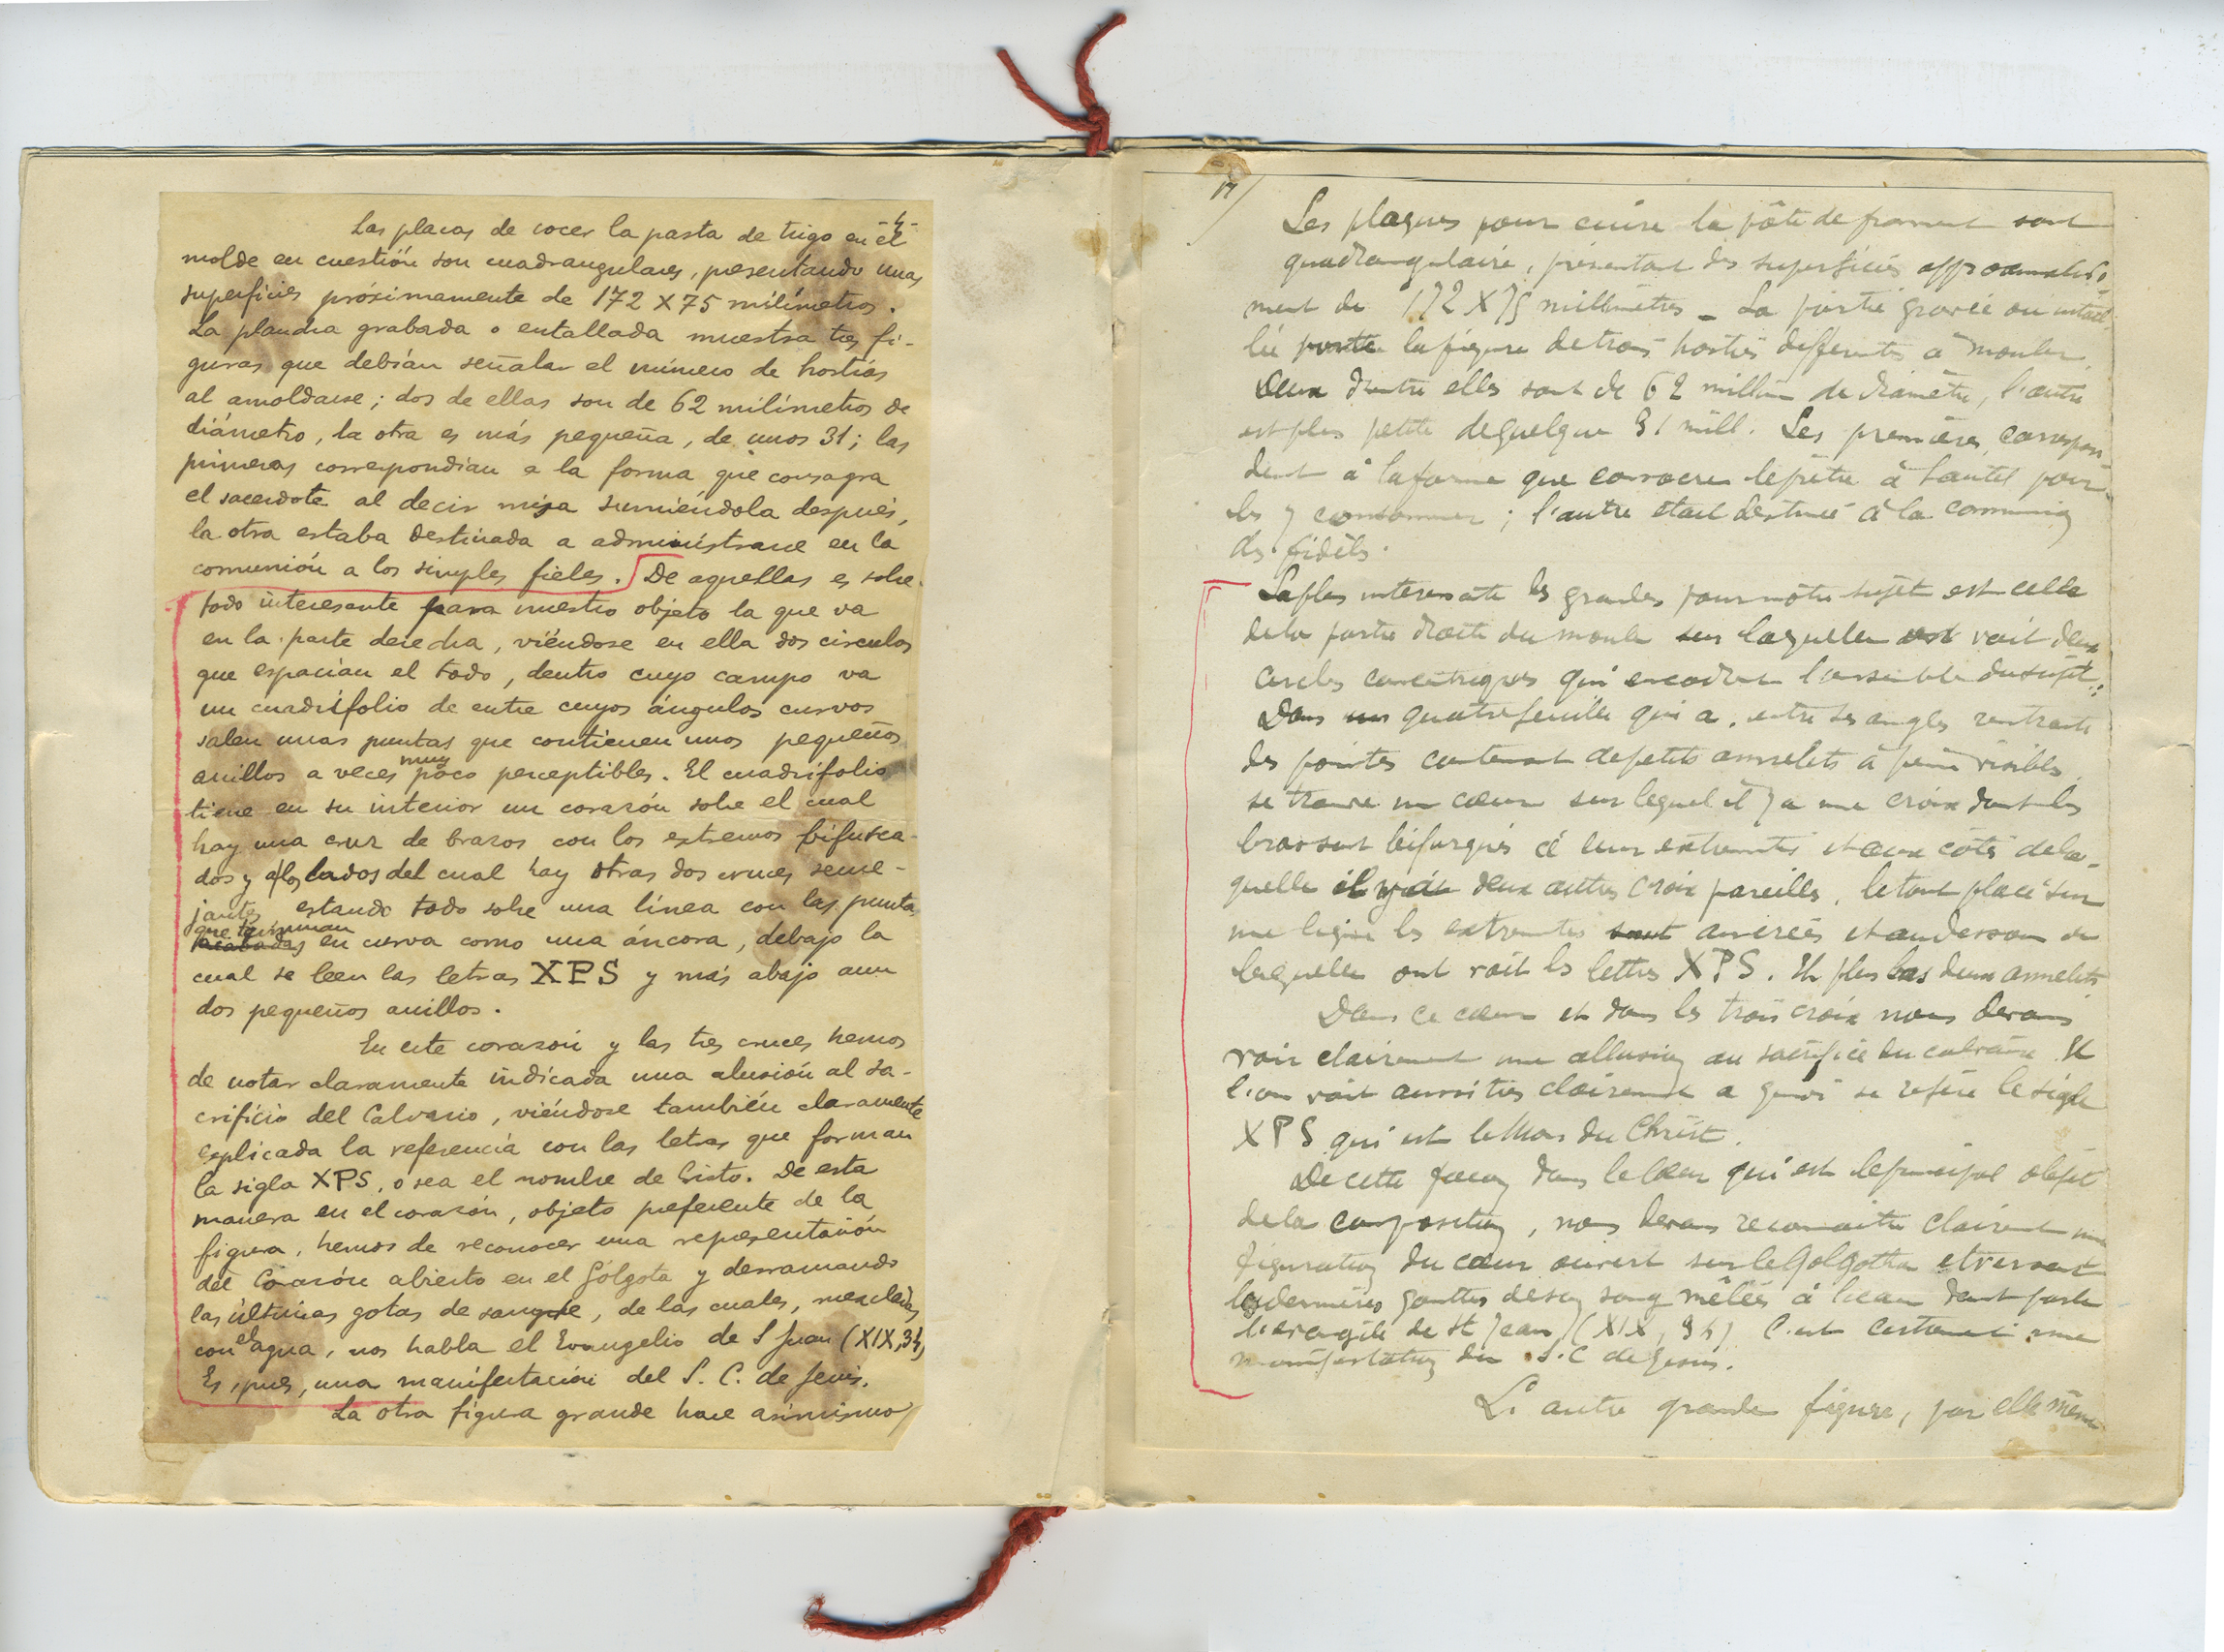 -4-
Las placas de cocer la pasta de trigo en el
molde en cuestión son cuadrangulares, presentando unas
superficies próximamente de 172 X 75 milímetros.
La plancha grabada o entallada muestra tres fi-
guras que debían señalar el número de hostias
al amoldarse; dos de ellas son de 62 milímetros de
diámetro, la otra es más pequeña, de unos 31; las
primeras correspondian a la forma que consagra
el sacerdote al decir misa sumiéndola después,
la otra estaba destinada a administrarse en la
comunión a los simples fieles. De aquellas es sobre
todo interesante para nuestro objeto la que va
en la parte derecha, viéndose en ella dos circulos
que espacian el todo, dentro cuyo campo va
un cuadrifolio de entre cuyos ángulos curvos
salen unas puntas que contienen unos pequeños
anillos a veces muy poco perceptibles. El cuadrifolio
tiene en su interior un corazón sobre el cual
hay una cruz de brazos con los extremos bifurca-
dos y a los lados del cual hay otras dos cruces seme-
jantes, estando todo sobre una línea con las puntas
que terminan en curva como una áncora, debajo la
cual se leen las letras XPS y más abajo aun
dos pequeños anillos.
En este corazón y las tres cruces hemos
de notar claramente indicada una alusión al sa-
crificio del Calvario, viéndose también claramente
explicada la referencia con las letras que forman
la sigla XPS, o sea el nombre de Cristo. De esta
manera en el corazón, objeto preferente de la
figura, hemos de reconocer una representación
del Corazón abierto en el Gólgota y derramando
las últimas gotas de sangre, de las cuales, mezcladas
con el agua, nos habla el Evangelio de S Juan (XIX,34)
Es, pues, una manifestación del S. C. de Jesús.
La otra figura grande hace asimismo
Les plaques pour cuire la pâte de froment sont
quadrangulaire, présentant des superficies approximative-
ment de 172 X 75 millimètres - La partie gravée ou intail-
lée porte la figure de trois hosties differentes à mouler.
Deux d'entre elles sont de 62 millim de diamètre, l'autre
est plus petite de quelque 31 mill. Les premières correspon-
dent à la forme que consacre le prêtre à l'autel pour
les y consommer; l'autre était destinée à la communion
des fidèles.
La plus interesante des grandes pour nôtre sujet est celle
de la partie droite du moule sur laquelle voit deux
cercles concentriques qui encadrent l'ensemble du sujet.
Dans un quatrefeuille qui a, entre ses angles rentrants
des pointes contenant de petits annelets à peine visibles
se trouve un cœur sur lequel il y a une croix dont les
bras sont bifurqués à leur extremités et aux côtés de la-
quelle deux autres croix pareilles, le tout placé sur
une ligne les extremites ancrées et au dessous de
laquelle ont voit les lettres XPS. Et plus bas deux annelets
Dans ce cœur et dans les trois croix nous devons
voir clairement une allusion au sacrifice du calvaire. Et
l'on voit aussi très clairement a quoi se refère le sigle
XPS qui est le Nom du Christ.
De cette façon dans le cœur qui est le principal objet
de la composition, nous devons reconnaitre clairement une
figuration du cœur ouvert sur le Golgotha et versant
les dernières gouttes de son sang mêlées à l'eau dont parle
l'evangile de St Jean (XIX, 34) C'est certainement une
manifestation du S. C de Jesus.
L'autre grande figure, par elle même